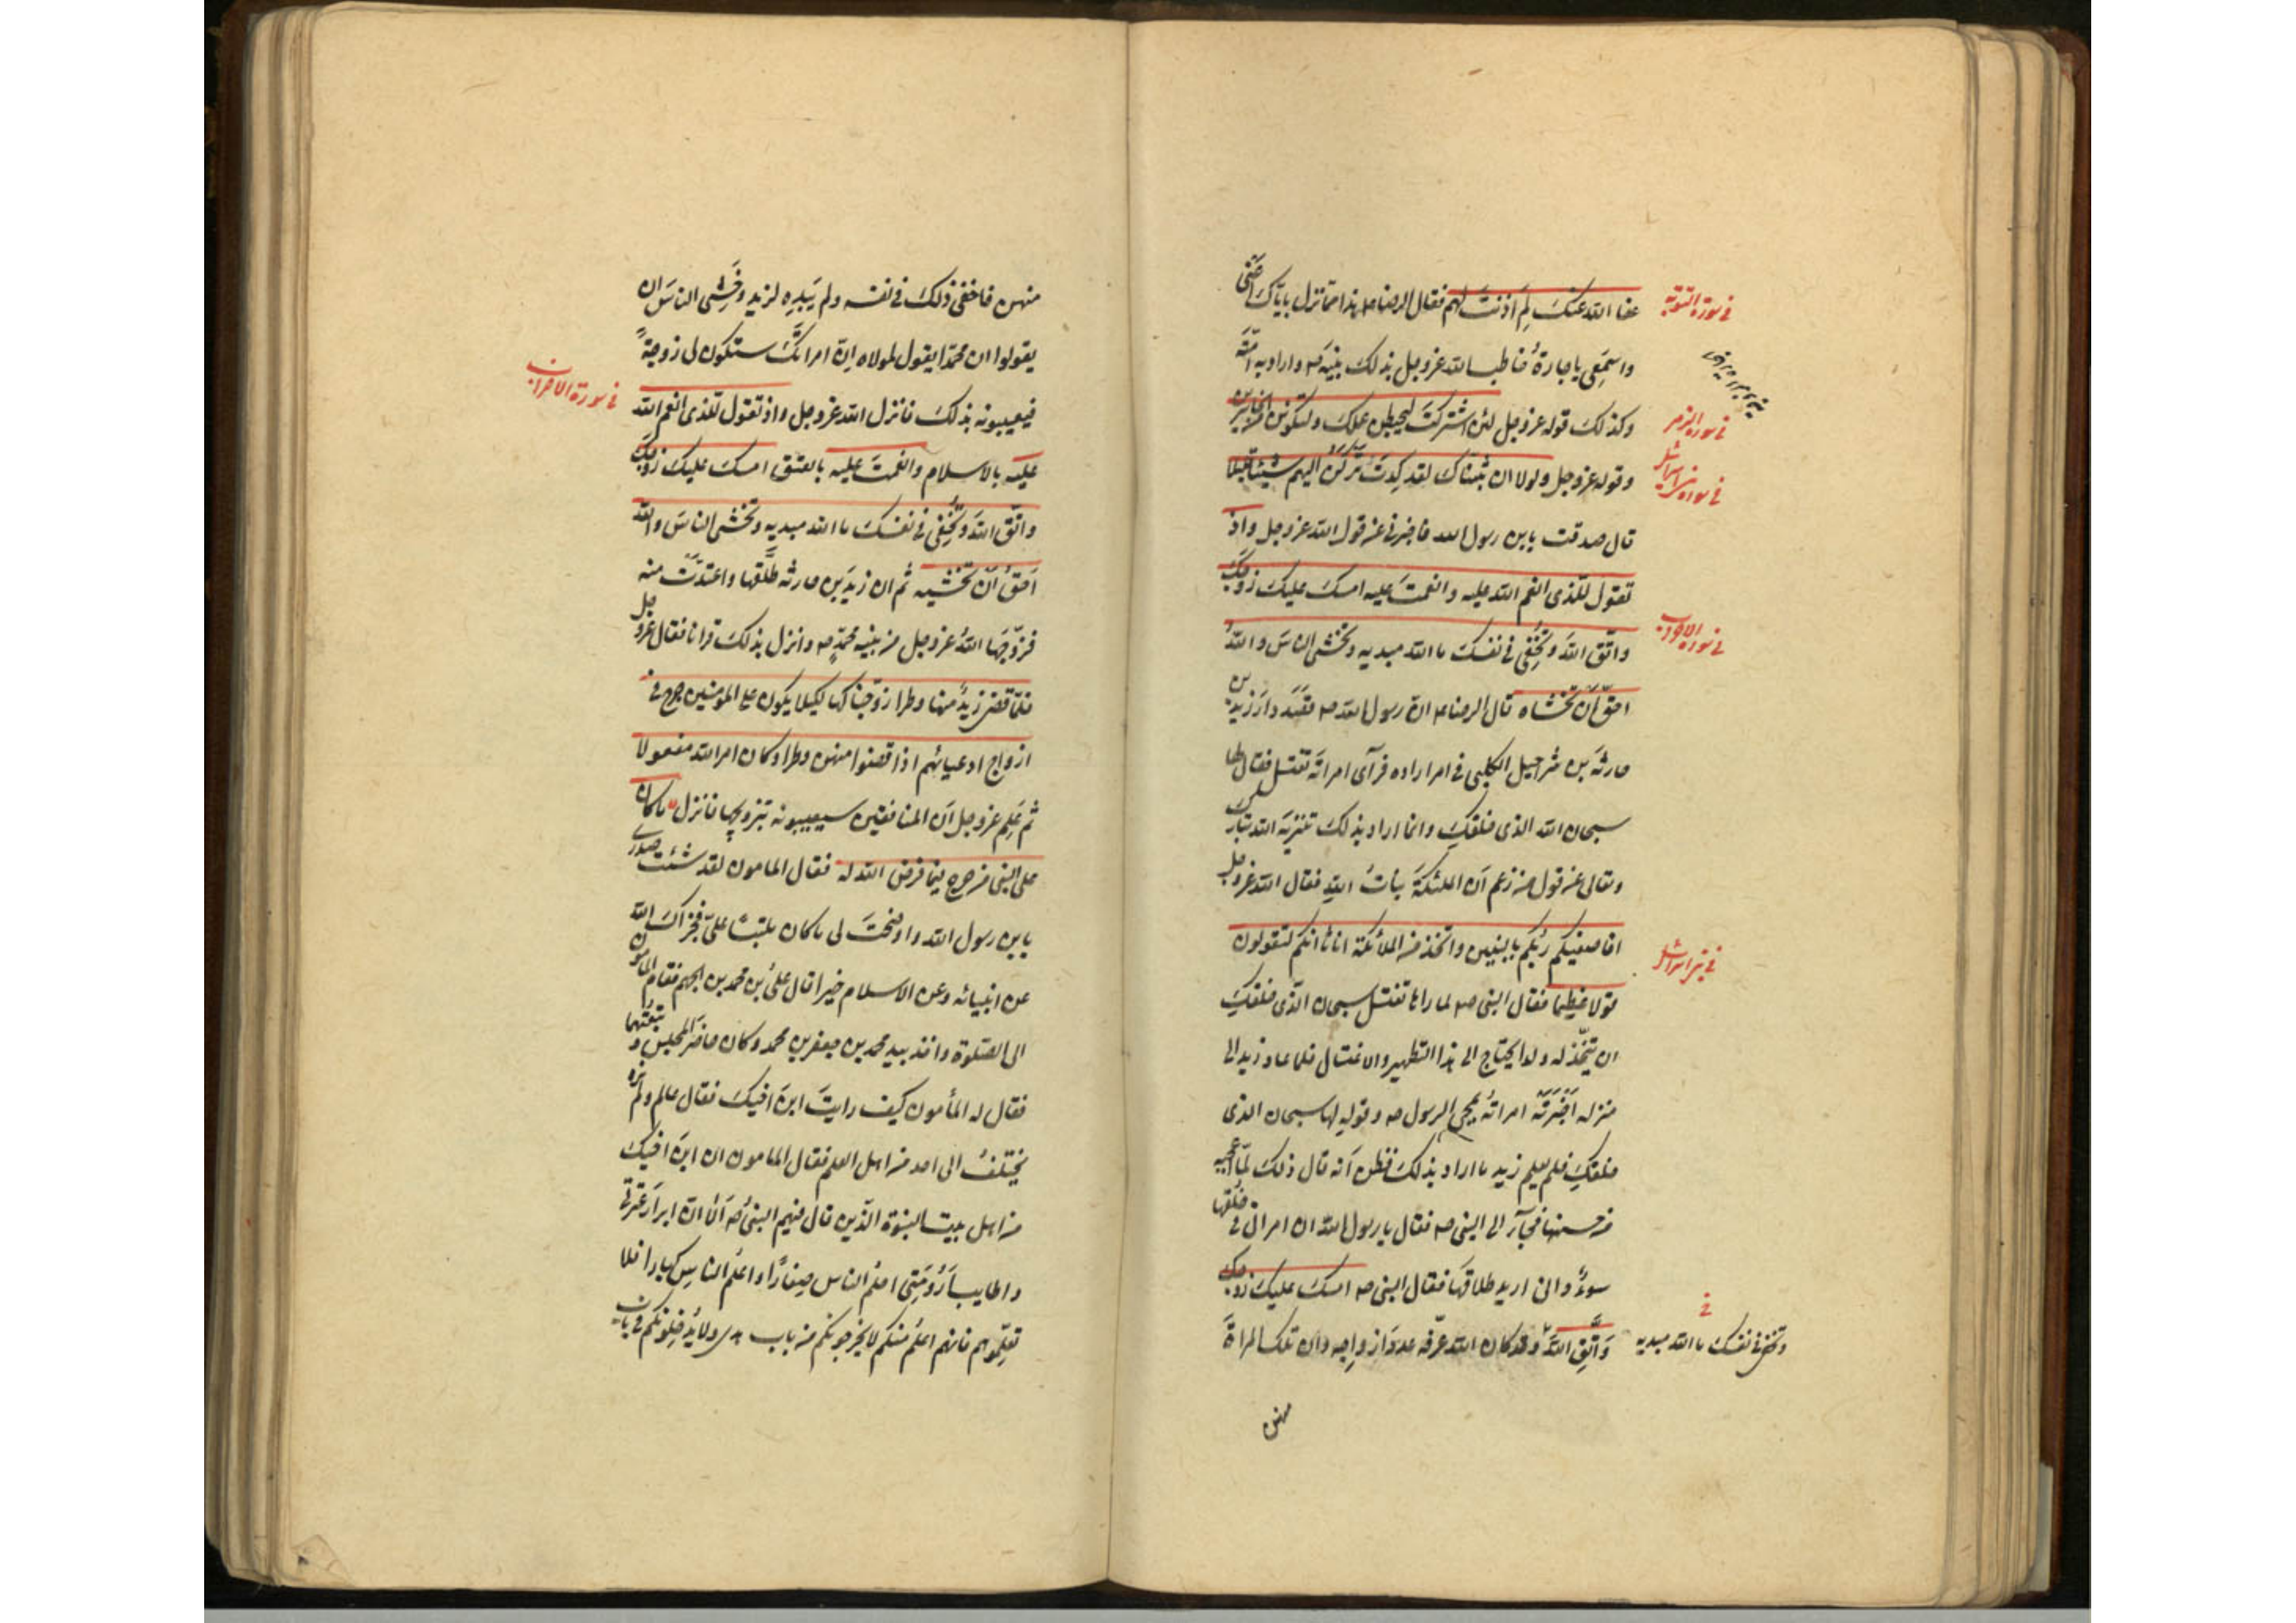 عفا الله عنك لم اذنت لهم فقال الرضا ع هذا مما نزل باياك اعنى
واسمعى يا جارة خاطب الله عز وجل بذلك نبيه ص واراد به امته
وكذلك قوله عز وجل لئن اشركت ليحبطن عملك ولتكونن من الخاسرين
وقوله عز وجل ولولا ان ثبتناك لقد كدت تركن اليهم شيئا قليلا
قال صدقت يابن رسول الله فاخبرنى عن قول الله عز وجل واذ
تقول للذى انعم الله عليه وانعمت عليه امسك عليك زوجك
واتق الله وتخفى فى نفسك ما الله مبديه وتخشى الناس والله
احق ان تخشاه قال الرضا ع ان رسول الله ص قصد دار زيد بن
حارثة بن شراحيل الكلبى فى امر اراده فرآى امراته تغتسل فقال لها
سبحان الله الذى خلقك وانما اراد بذلك تنزيه الله تبارك
وتعالى عن قول من زعم ان الملئكة بنات الله فقال الله عز وجل
افاصفيكم ربكم بالبنين واتخذ من الملائكة اناثا انكم لتقولون
قولا عظيما فقال النبى ص لما راها تغتسل سبحان الذى خلقك
ان يتخذ له ولدا يحتاج الى هذا التطهير والاغتسال فلما عاد زيد الى
منزله اخبرته امراته بمجئ الرسول ص وقوله لها سبحان الذى
خلقك فلم يعلم زيد ما اراد بذلك فظن انه قال ذلك لما اعجبه
من حسنها فجآء الى النبى ص فقال يا رسول الله ان امراتى فى خلقها
سوء وانى اريد طلاقها فقال النبى ص امسك عليك زوجك
واتق الله وقد كان الله عرفه عدد ازواجه وان تلك المراة
منهن
فى سورة التوبة
فى سورة الزمر
فى سورة بنى اسرائيل
فى سورة الاحزاب
فى بنى اسرائيل
وتخفى فى نفسك ما الله مبديه
منهن فاخفى ذلك فى نفسه ولم يبده لزيد وخشى الناس ان
يقولوا ان محمدا يقول لمولاه ان امراتك ستكون لى زوجة
فيعيبونه بذلك فانزل الله عز وجل واذ تقول للذى انعم الله
عليه بالاسلام وانعمت عليه بالعتق امسك عليك زوجك
واتق الله وتخفى فى نفسك ما الله مبديه وتخشى الناس والله
احق ان تخشيه ثم ان زيد بن حارثه طلقها واعتدت منه
فزوجها الله عز وجل من نبيه محمد ص وانزل بذلك قرانا فقال عز وجل
فلما قضى زيد منها وطرا زوجناكها لكيلا يكون على المومنين حرج فى
ازواج ادعيائهم اذا قضوا منهن وطرا وكان امر الله مفعولا
ثم علم عز وجل ان المنافقين سيعيبونه بتزويجها فانزل ما كان
على النبى من حرج فيما فرض الله له فقال المامون لقد شفيت صدرى
يابن رسول الله واوضحت لى ما كان ملتبسا على فجزاك الله
عن انبيائه وعن الاسلام خيرا قال على بن محمد بن الجهم فقام المامون
الى الصلوة واخذ بيد محمد بن جعفر بن محمد وكان حاضر المجلس وتبعتهما
فقال له المأمون كيف رايت ابن اخيك فقال عالم ولم نره
يختلف الى احد من اهل العلم فقال المامون ان ابن اخيك
من اهل بيت النبوة الذين قال فيهم النبى ص الا ان ابرار عترتى
واطايب ارومتى احلم الناس صغارا واعلم الناس كبارا فلا
تعلموهم فانهم اعلم منكم لا يخرجونكم من باب هدى ولا يدخلونكم فى باب
فى سورة الاحزاب